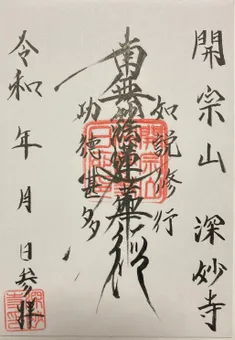 開宗山 深妙寺
如説修行
南無妙法蓮華経
功徳甚多
令和 年 月 日参拝